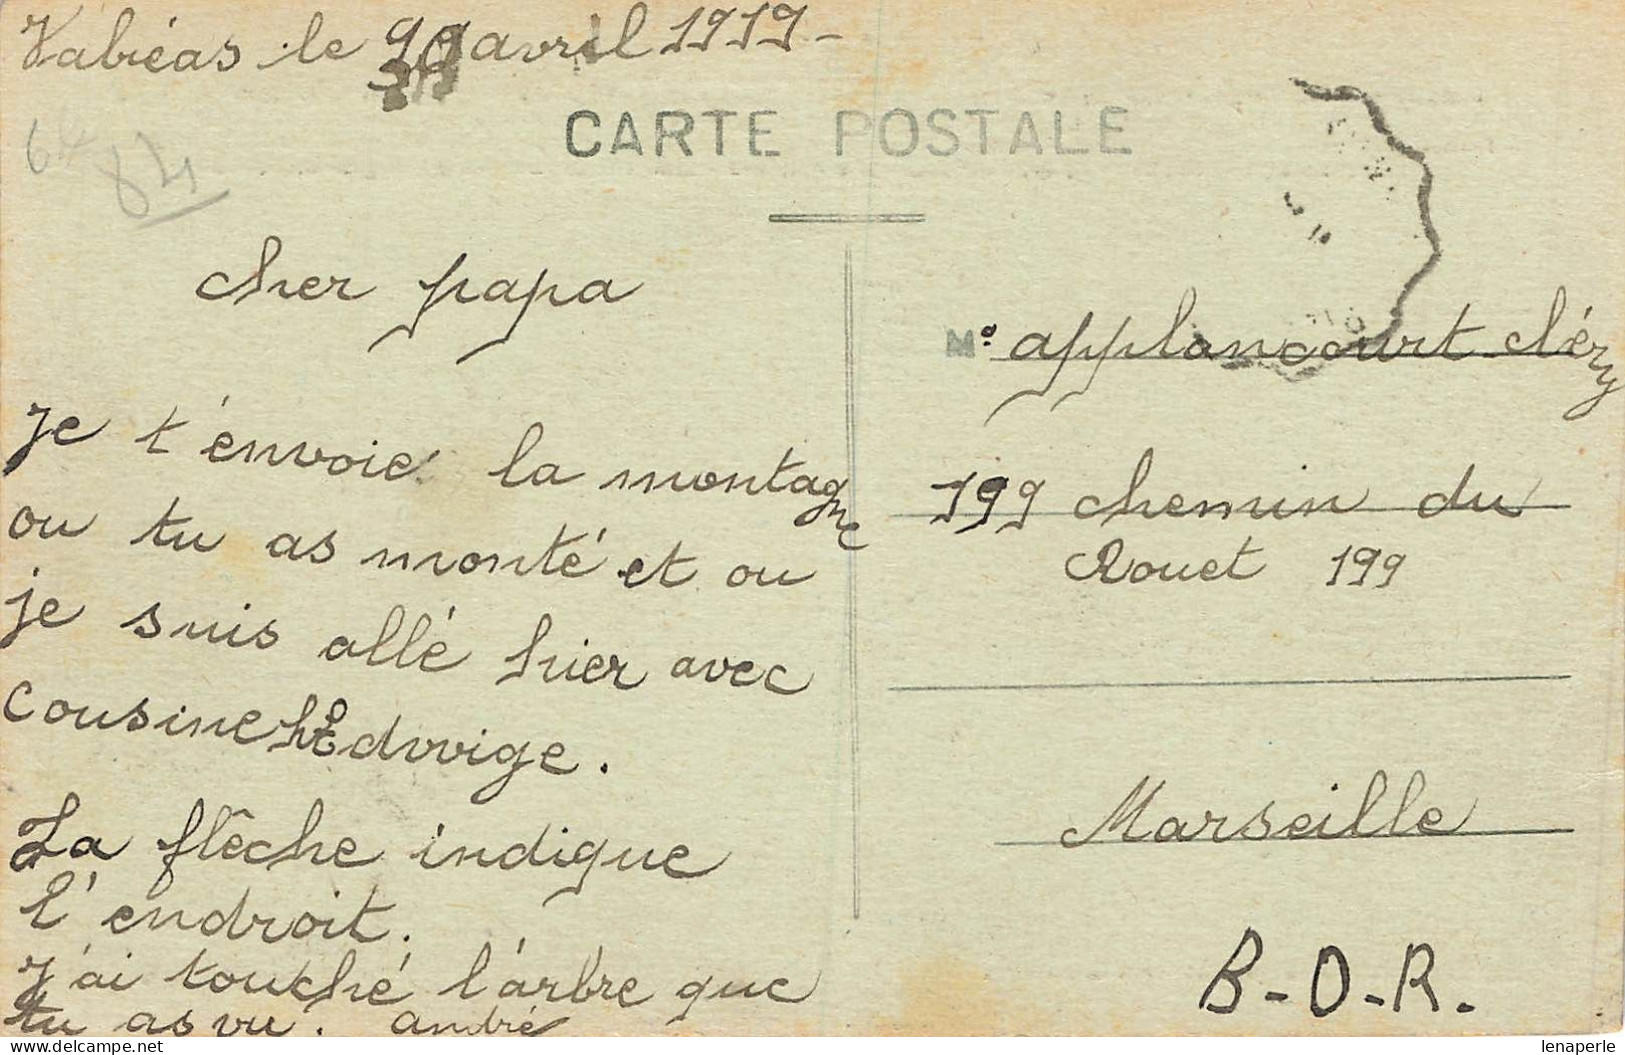 Vabréas le avril 1919-
CARTE POSTALE
84
cher papa
Je t'envoie la montagne
ou tu as monté et ou
je suis allé hier avec
cousine Edwige.
La flêche indique
l'endroit.
J'ai touché l'arbre que
tu as vu. andré
M. applancourt cléry
199 chemin du
Rouet 199
Marseille
B-D-R.
lenaperle